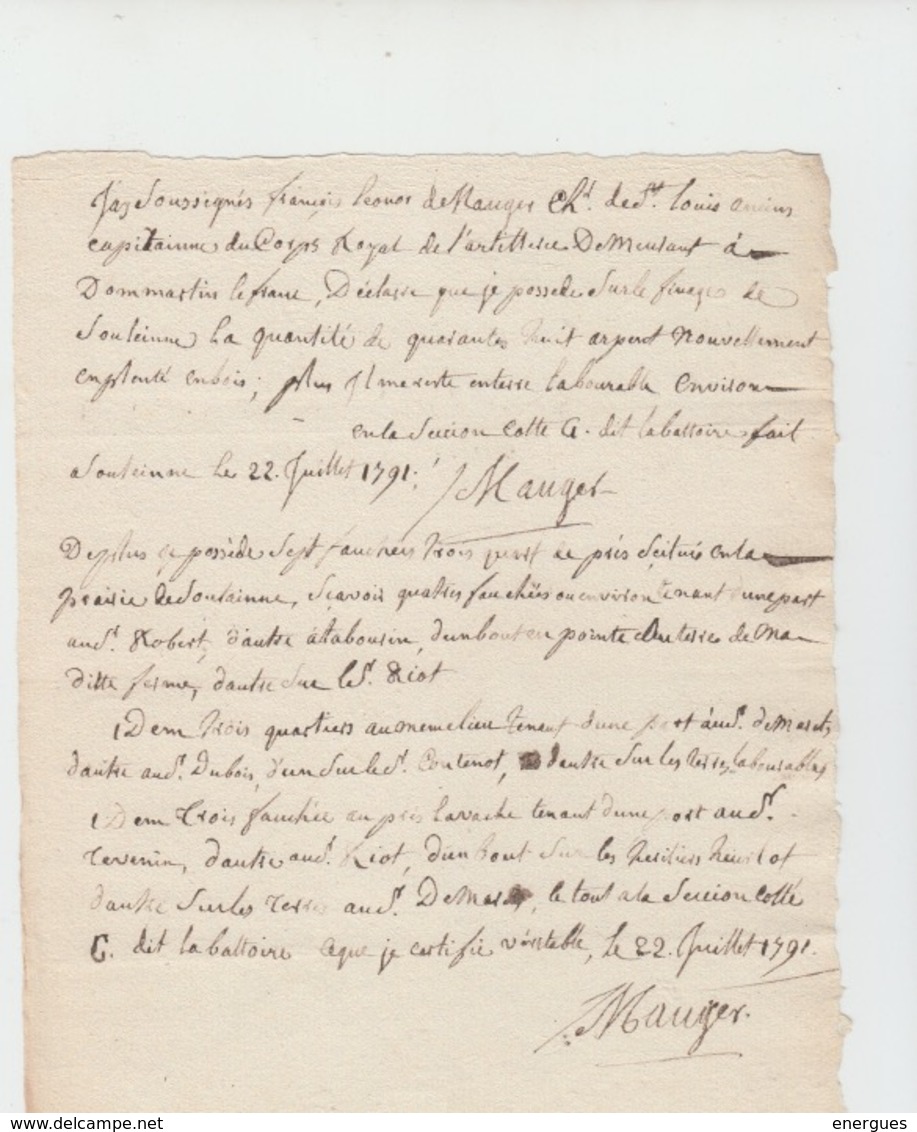 Jay Soussignés françois leonor de Mauger Chr. de St. louis anciens
capitainne du Corps Royal de l'artillerie Demeurant á
Dommartin le franc, Déclare que je possede Sur le finage de
Souleinne la quantité de quarantes huit arpent nouvellement
emplenté en bois; plus Jl me reste en terre labourable environ
en la Seccion Cotte G. dit la battoire fait
a Souleinne le 22. Juillet 1791. Mauger
De plus je possède Sept fauchées trois quart de prés Scitués en la
prairie de Soulainne, Sçavoir quatres fauchées ou environ tenant d'une part
au Sr. Robert, d'autre á tabourin, d'un bout en pointe Sur terre de Ma
ditte ferme, d'autre Sur le Sr. Riot
1Dem trois quartiers au meme lieu tenant d'une part au Sr. de Marets
d'autre au Sr. Dubois, d'un Sur le Sr. Contenot, d'autre Sur les terres labourables
1Dem Trois fauchée au prés la vache tenant d'une part au Sr.
Tevenin, d'autre au Sr. Riot, d'un bout Sur les heritiers
d'autre Sur les Terres au Sr. De le tout a la Seccion Cotté
G. dit la battoire Ce que je certifie véritable, le 22. Juillet 1791.
Mauger.
energues